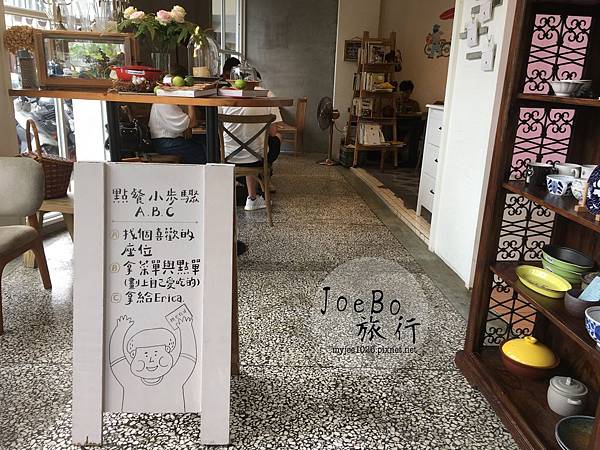 點餐小步驟
A.B.C
A 找個喜歡的
座位
B 拿菜單與點單
(劃上自己愛吃的)
C 拿給Erica.
JoeBo
旅行
myjoe1026.pixnet.net